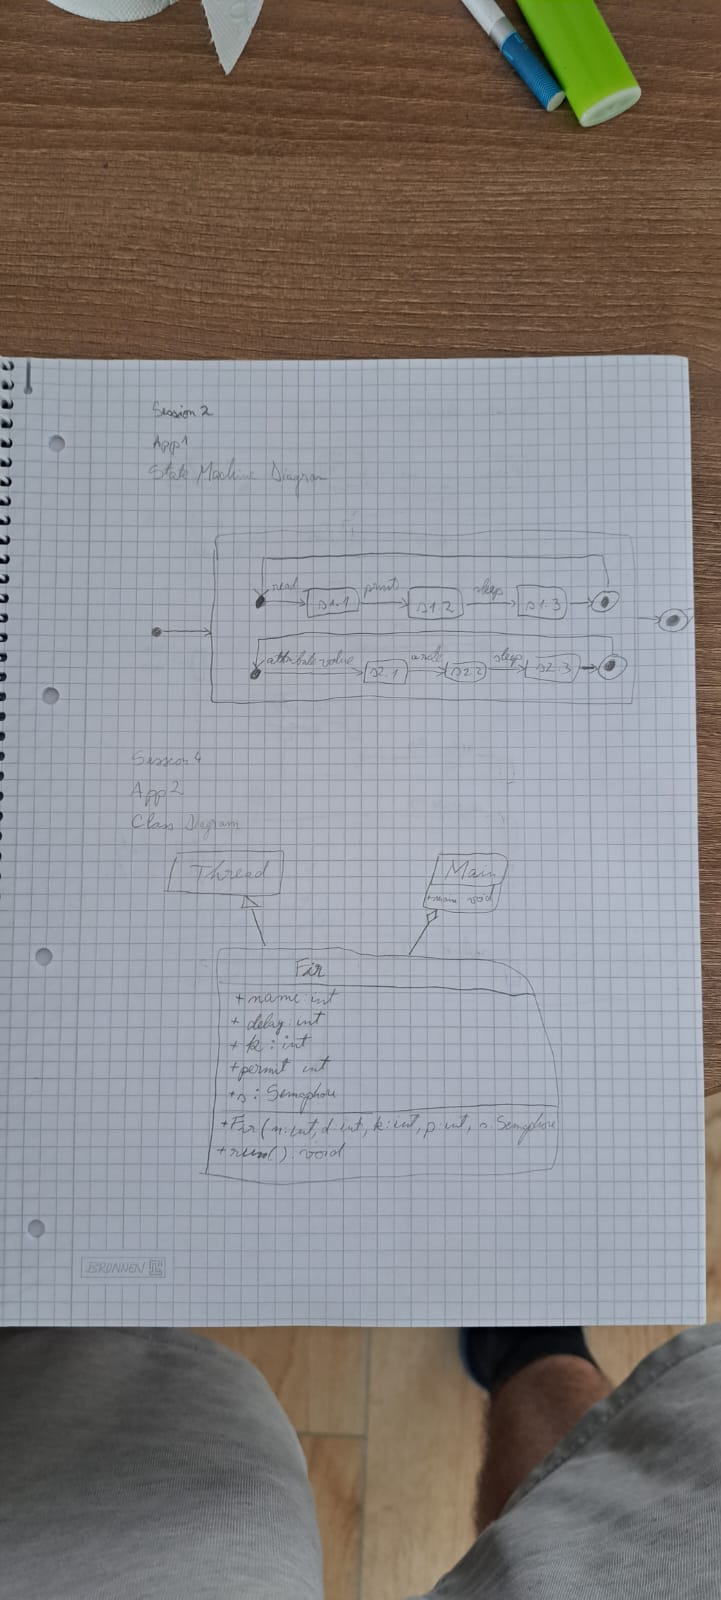 Session 2
App1
State Machine Diagram
read
print
sleep
s1.1
s1.2
s1.3
attribute value
sleep
s2.1
s2.2
s2.3
Session 4
App2
Class Diagram
Thread
Main
+main void
Fir
+ name: int
+ delay: int
+ k: int
+permit int
+s: Semaphore
+Fir(n:int, d:int, k:int, p:int, s:Semaphore
+run(): void
BRUNNEN